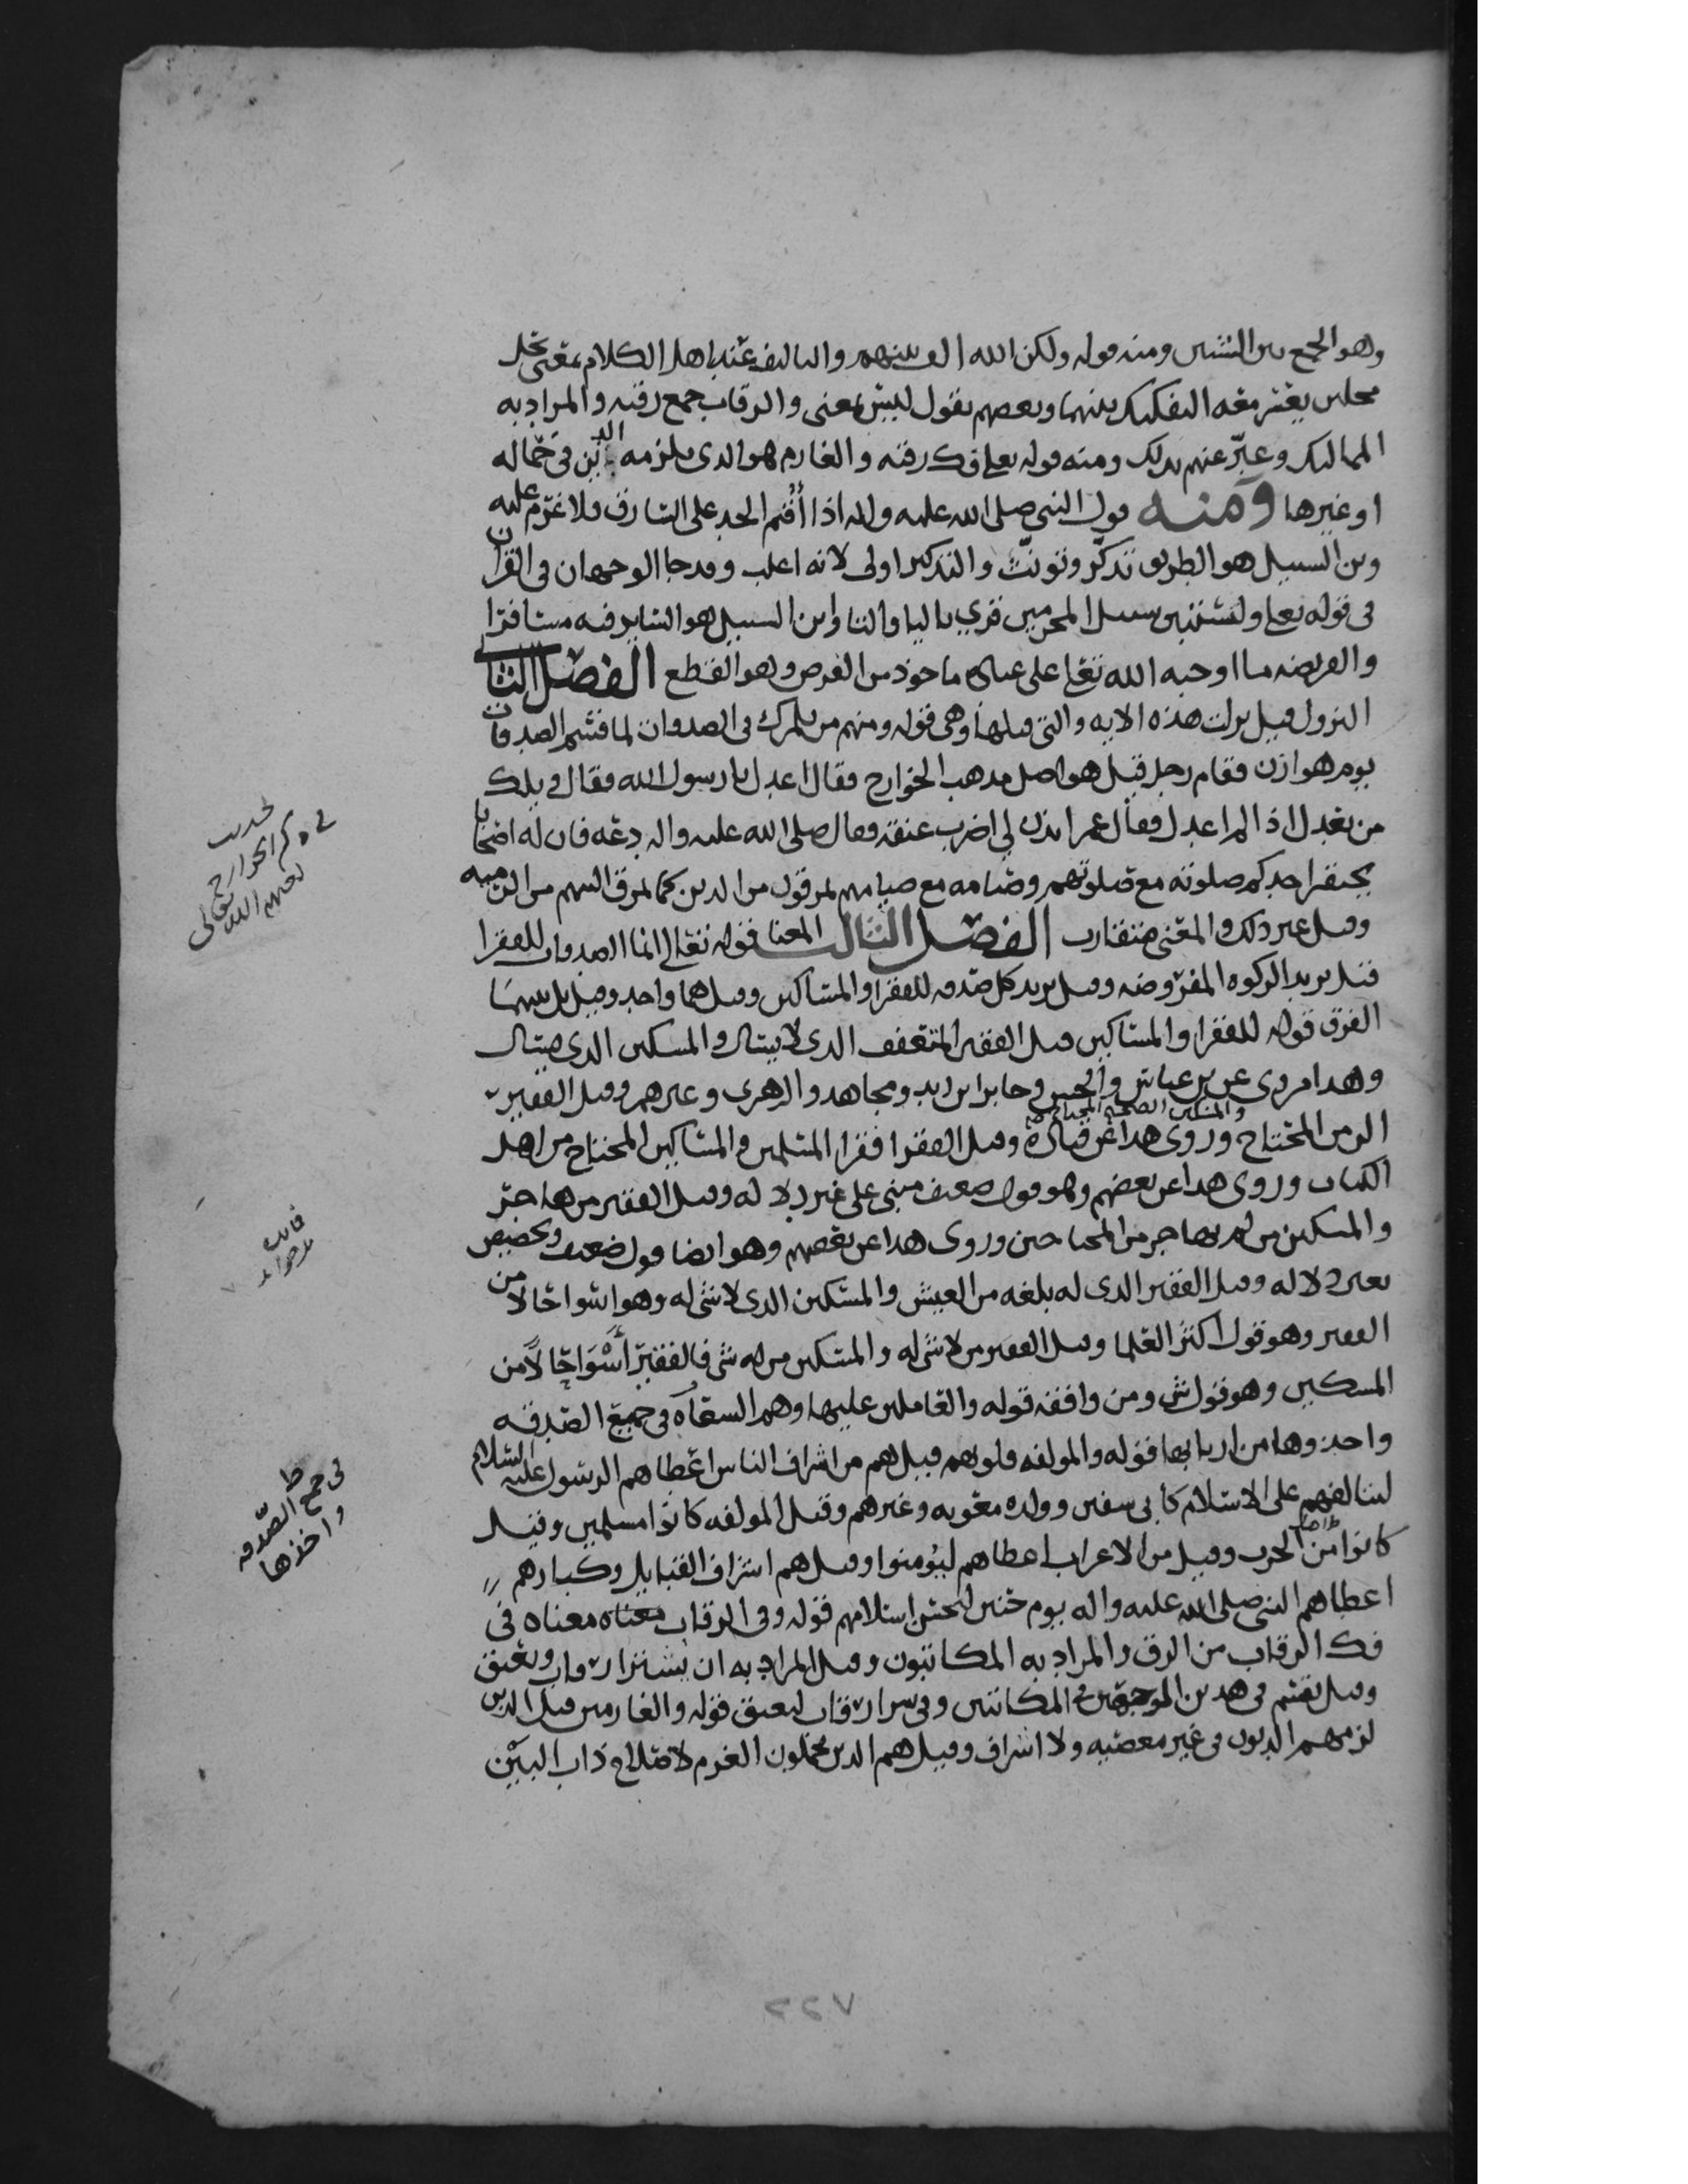 وهو الجمع بين الشيين ومنه قوله ولكن الله الف بينهم والتاليف عند اهل الكلام معنى يحل
محلين يعسر معه التفكيك بينهما وبعضهم يقول ليس بمعنى والرقاب جمع رقبه والمراد به
المماليك وعبّر عنهم بذلك ومنه قوله تعلى فك رقبه والغارم هو الذي يلزمه الدين في حماله
او غيرها ومنه قول النبي صلى الله عليه واله اذا أقيم الحد على السارق فلا غرم عليه
وبن السبيل هو الطريق تذكّر وتونّث والتذكير اولى لانه اغلب وقد جا الوجهان في القران
في قوله تعلى ولتستبين سبيل المجرمين قري باليا والتا وابن السبيل هو الساير فيه مسافرا
والفريضه ما اوجبه الله تعلى على عباده ماخوذ من الفرض وهو القطع الفصل الثاني
النزول قيل نزلت هذه الايه والتي قبلها وهي قوله ومنهم من يلمزك في الصدقات لما قسم الصدقات
يوم هوازن فقام رجل قيل هو اصل مذهب الخوارج فقال اعدل يا رسول الله فقال ويلك
من يعدل اذا لم اعدل فقال عمر ايذن لي اضرب عنقه فقال صلى الله عليه واله دعه فان له اصحابا
يحتقر احدكم صلوته مع صلوتهم وصيامه مع صيامهم يمرقون من الدين كما يمرق السهم من الرميه
وقيل غير ذلك والمعنى متقارب الفصل الثالث المعنا قوله تعالى انما الصدقات للفقرا
قيل يريد الزكوه المفروضه وقيل يريد كل صدقه للفقرا والمساكين وقيل هما واحد وقيل بل بينهما
الفرق قوله للفقرا والمساكين قيل الفقير المتعفف الذي لا يسال والمسكين الذي يسال
وهذا مروي عن بن عباس والحسن وجابر ابن زيد ومجاهد والزهري وغيرهم وقيل الفقير
الزمن المحتاج والمسكين الصحيح المحتاج وروى هذا عن قتادة وقيل الفقرا فقرا المسلمين والمساكين المحتاج من اهل
الكتاب وروى هذا عن بعضهم وهو قول ضعيف مبني على غير دلاله وقيل الفقير من هاجر
والمسكين من لم يهاجر من المحتاجين وروى هذا عن بعضهم وهو ايضا قول ضعيف وتخصيص
بغير دلاله وقيل الفقير الذي له بلغه من العيش والمسكين الذي لا شي له وهو اسوا حالا من
الفقير وهو قول اكثر العلما وقيل الفقير من لا شي له والمسكين من له شي فالفقير أسْوَا حالاً من
المسكين وهو قول ش ومن وافقه قوله والعاملين عليها وهم السعاه في جميع الصدقه
واخذوها من اربابها قوله والمولفه قلوبهم قيل هم من اشراف الناس اعطاهم الرسول عليه السلام
ليتالفهم على الاسلام كابي سفين وولده معويه وغيرهم وقيل المولفه كانوا مسلمين وقيل
كانوا من اهل الحرب وقيل من الاعراب اعطاهم ليؤمنوا وقيل هم اشراف القبايل وكبارهم
اعطاهم النبي صلى الله عليه واله يوم حنين لحسن اسلامهم قوله وفي الرقاب معناه معناه في
فك الرقاب من الرق والمراد به المكاتبون وقيل المراد به ان يشترا رقاب ويعتق
وقيل يقسم في هذين الموضعين في المكاتبين وفي شرا رقاب ليعتق قوله والغارمين قيل الذين
لزمهم الديون في غير معصيه ولا اسراف وقيل هم الذين يحملون الغرم لاصلاح ذات البين
حديث
في ذكر الخوارج
لعنهم الله تعالى
في جمع الصدقه
واخذها
٧٢٢